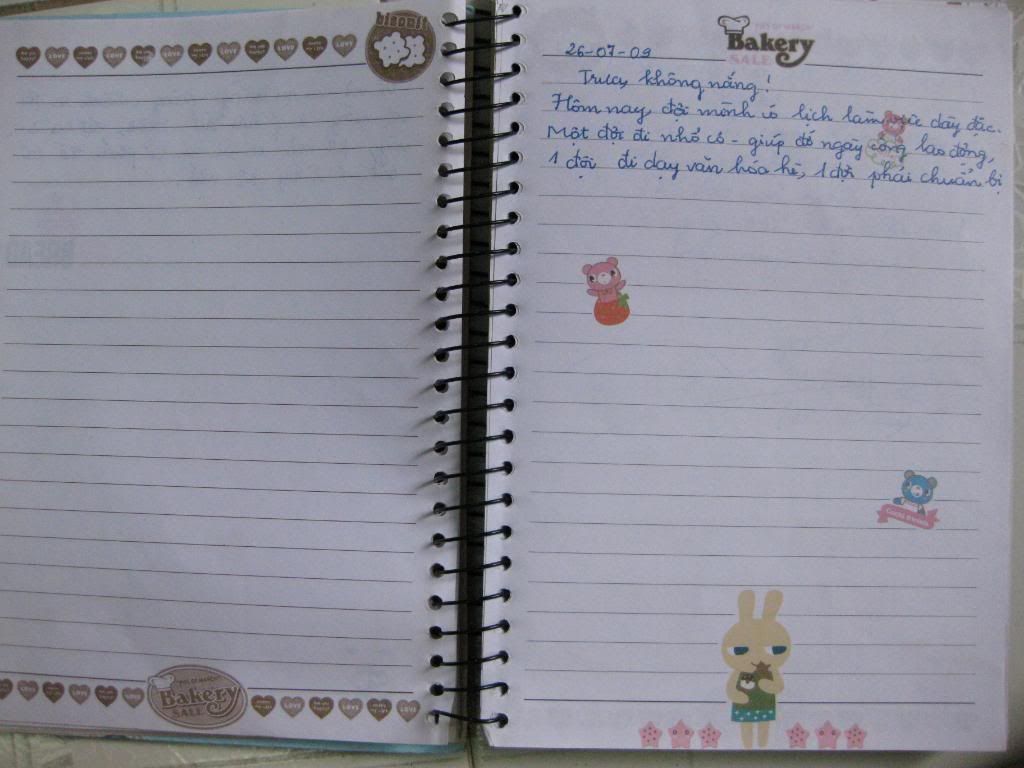 biscuit
LOVE LOVE LOVE LOVE LOVE LOVE
Bakery
SALE
26-07-09
Trưa, không nắng!
Hôm nay, đội mình có lịch làm việc dày đặc.
Một đội đi nhổ cỏ - giúp đỡ ngày công lao động,
1 đội đi dạy văn hóa hè, 1 đội phải chuẩn bị
BREAD
Bakery
SALE
LOVE LOVE LOVE LOVE LOVE